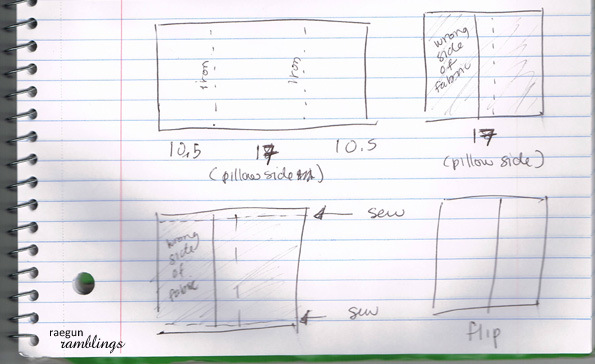 Iron
Iron
10.5
17
10.5
(pillow side)
wrong
side
of
fabric
17
(pillow side)
wrong
side
of
fabric
sew
sew
flip
raegun
ramblings